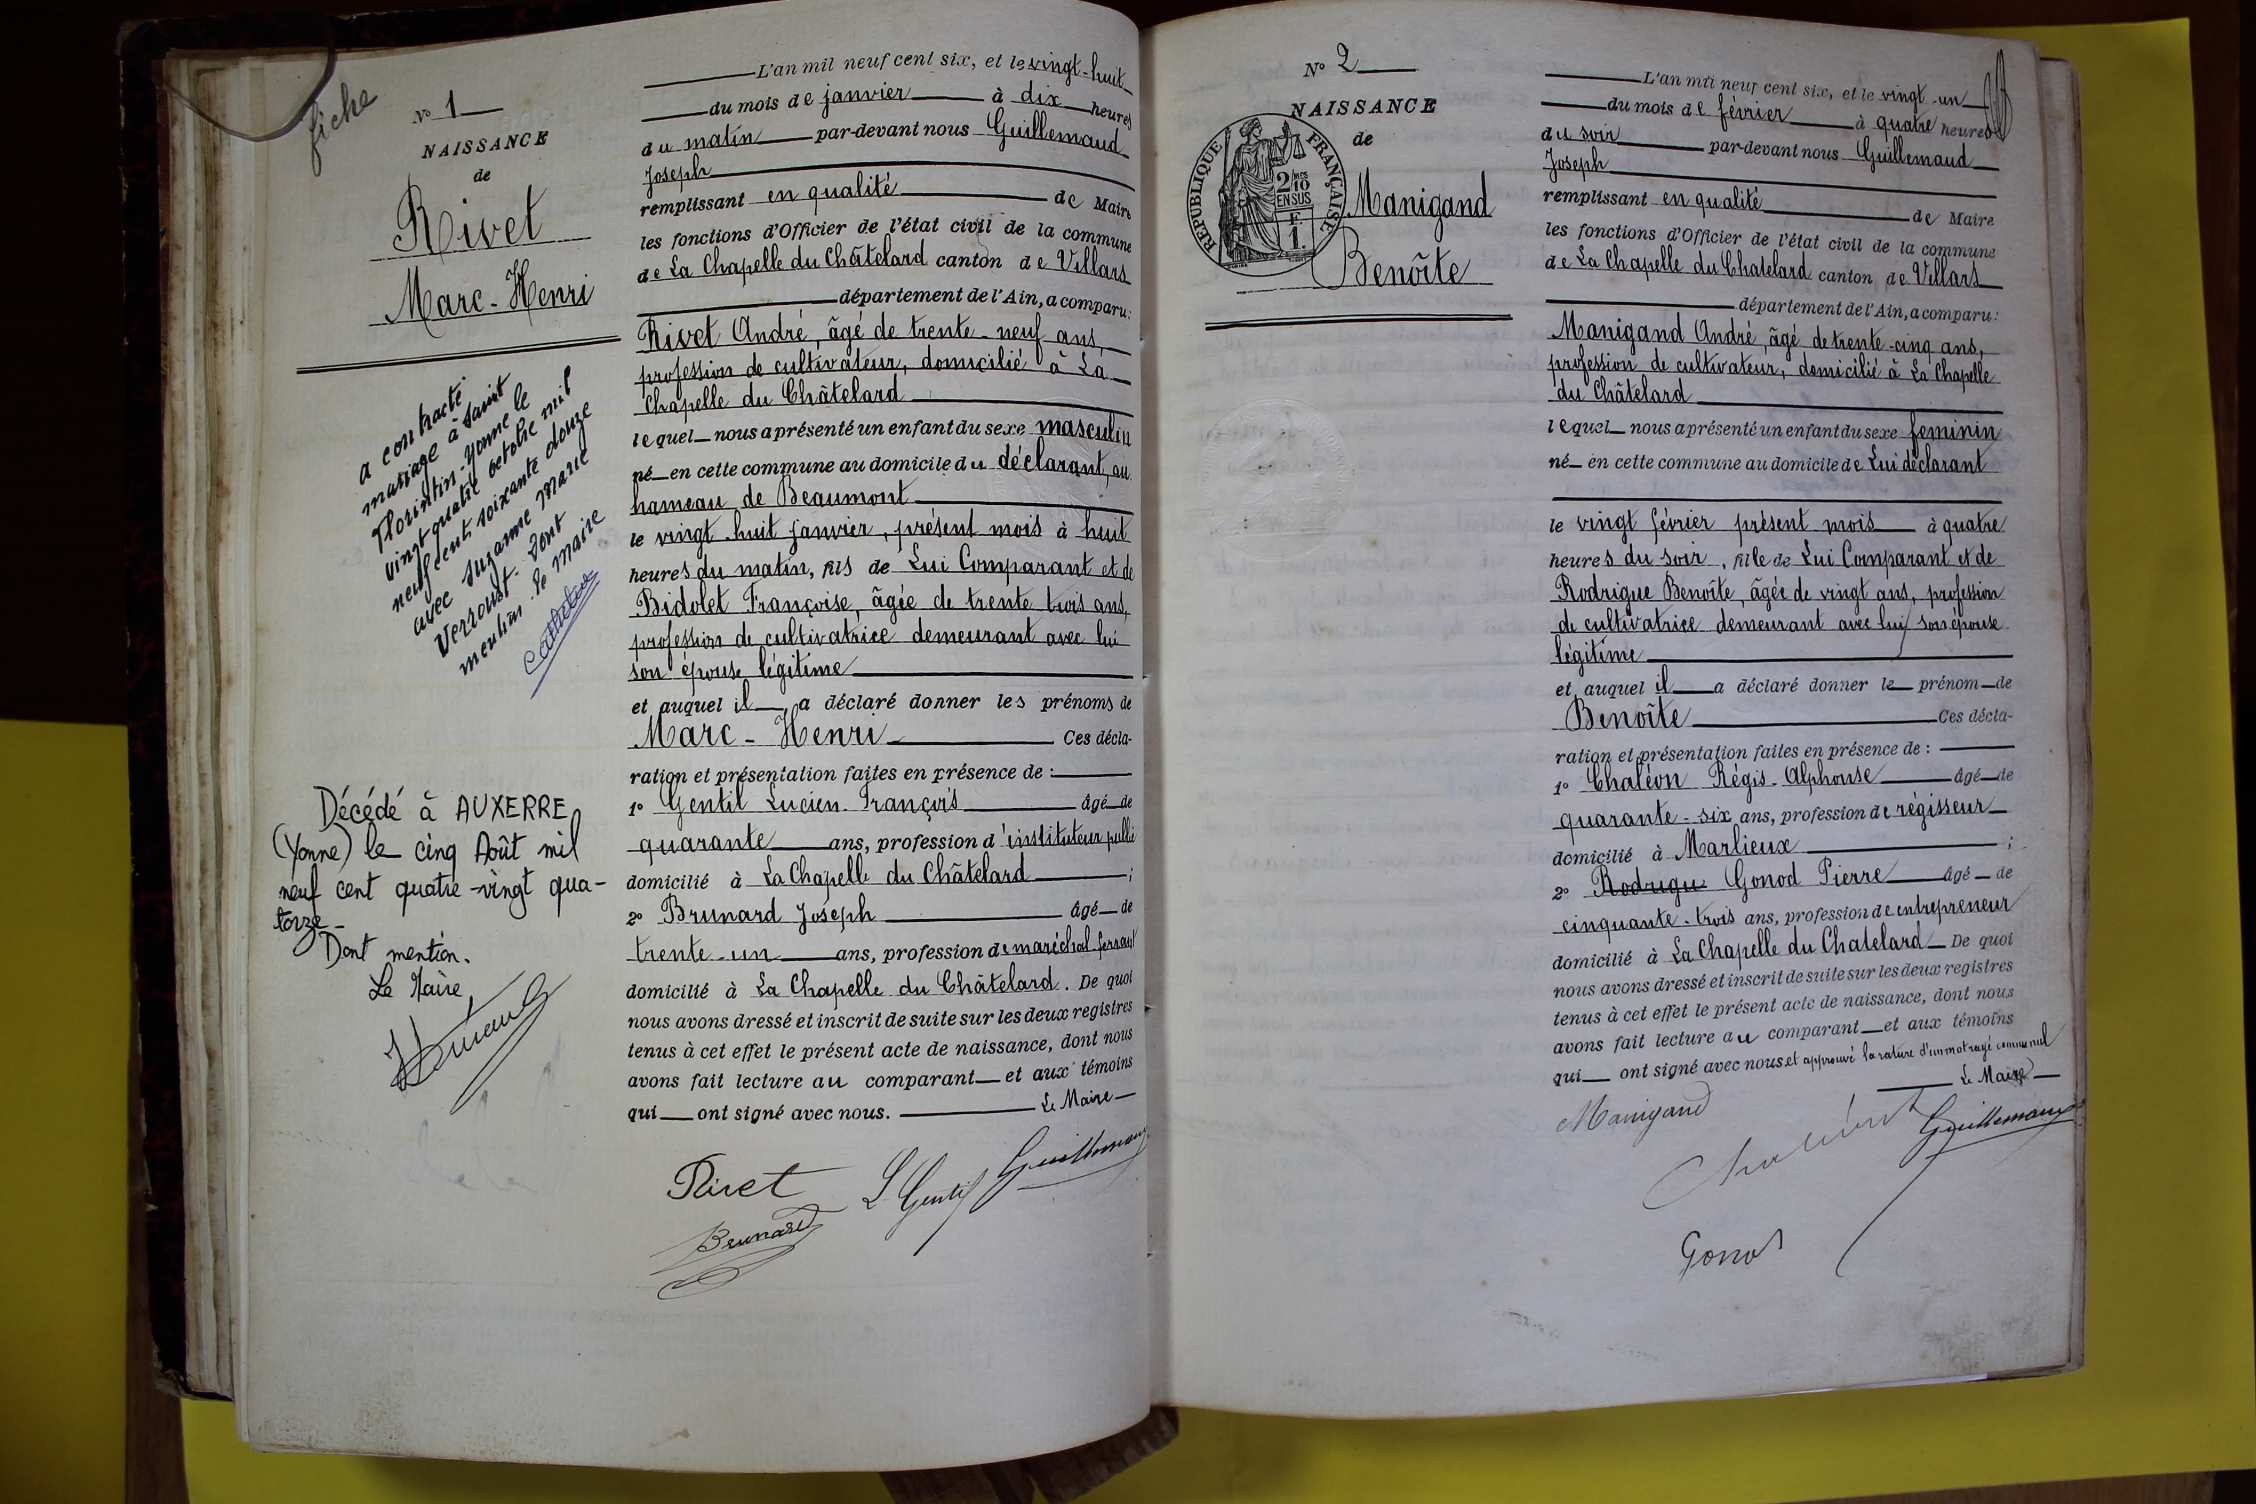 fiche
N° 1
NAISSANCE
de
Rivet
Marc-Henri
a contracté
mariage à saint
Florentin-Yonne le
vingt quatre octobre mil
neuf cent soixante douze
avec Suzanne Marie
Verroust. Dont
mention. le maire
Décédé à AUXERRE
(Yonne) le cinq Août mil
neuf cent quatre-vingt qua-
torze-
Dont mention.
Le Maire,
L'an mil neuf cent six, et le vingt-huit
du mois de janvier à dix heures
du matin par-devant nous Guillemaud
Joseph
remplissant en qualité de Maire
les fonctions d'Officier de l'état civil de la commune
de La Chapelle du Châtelard canton de Villars
département de l'Ain, a comparu:
Rivet André, âgé de trente-neuf ans,
profession de cultivateur, domicilié à La
Chapelle du Châtelard
lequel nous a présenté un enfant du sexe masculin
né en cette commune au domicile du déclarant, au
hameau de Beaumont
le vingt-huit janvier, présent mois à huit
heures du matin, fils de Lui Comparant et de
Bidolet Françoise, âgée de trente trois ans,
profession de cultivatrice demeurant avec lui
son épouse légitime
et auquel il a déclaré donner les prénoms de
Marc-Henri Ces décla-
ration et présentation faites en présence de :
1° Gentil Lucien-François âgé de
quarante ans, profession d'instituteur public
domicilié à La Chapelle du Châtelard ;
2° Brunard Joseph âgé de
trente-un ans, profession de maréchal ferrant
domicilié à La Chapelle du Châtelard. De quoi
nous avons dressé et inscrit de suite sur les deux registres
tenus à cet effet le présent acte de naissance, dont nous
avons fait lecture au comparant et aux témoins
qui ont signé avec nous. Le Maire
Rivet L Gentil Guillemaud
Brunard
N° 2
NAISSANCE
de
RÉPUBLIQUE FRANÇAISE
2/10 mes
EN SUS
F.
1.
Manigand
Benoîte
L'an mil neuf cent six, et le vingt-un
du mois de février à quatre heures
du soir par-devant nous Guillemaud
Joseph
remplissant en qualité de Maire
les fonctions d'Officier de l'état civil de la commune
de La Chapelle du Chatelard canton de Villars
département de l'Ain, a comparu:
Manigand André, âgé de trente-cinq ans,
profession de cultivateur, domicilié à La Chapelle
du Châtelard
lequel nous a présenté un enfant du sexe feminin
né en cette commune au domicile de Lui déclarant
le vingt février présent mois à quatre
heures du soir, fille de Lui Comparant et de
Rodrigue Benoîte, âgée de vingt ans, profession
de cultivatrice demeurant avec lui, son épouse
légitime
et auquel il a déclaré donner le prénom de
Benoîte Ces décla-
ration et présentation faites en présence de :
1° Chaléon Régis-Alphonse âgé de
quarante-six ans, profession de régisseur
domicilié à Marlieux ;
2° Rodrigue Gonod Pierre âgé de
cinquante-trois ans, profession de entrepreneur
domicilié à La Chapelle du Chatelard De quoi
nous avons dressé et inscrit de suite sur les deux registres
tenus à cet effet le présent acte de naissance, dont nous
avons fait lecture au comparant et aux témoins
qui ont signé avec nous et approuvé la rature d'un mot rayé comme nul
Le Maire
Manigand
Guillemaud
Gonod